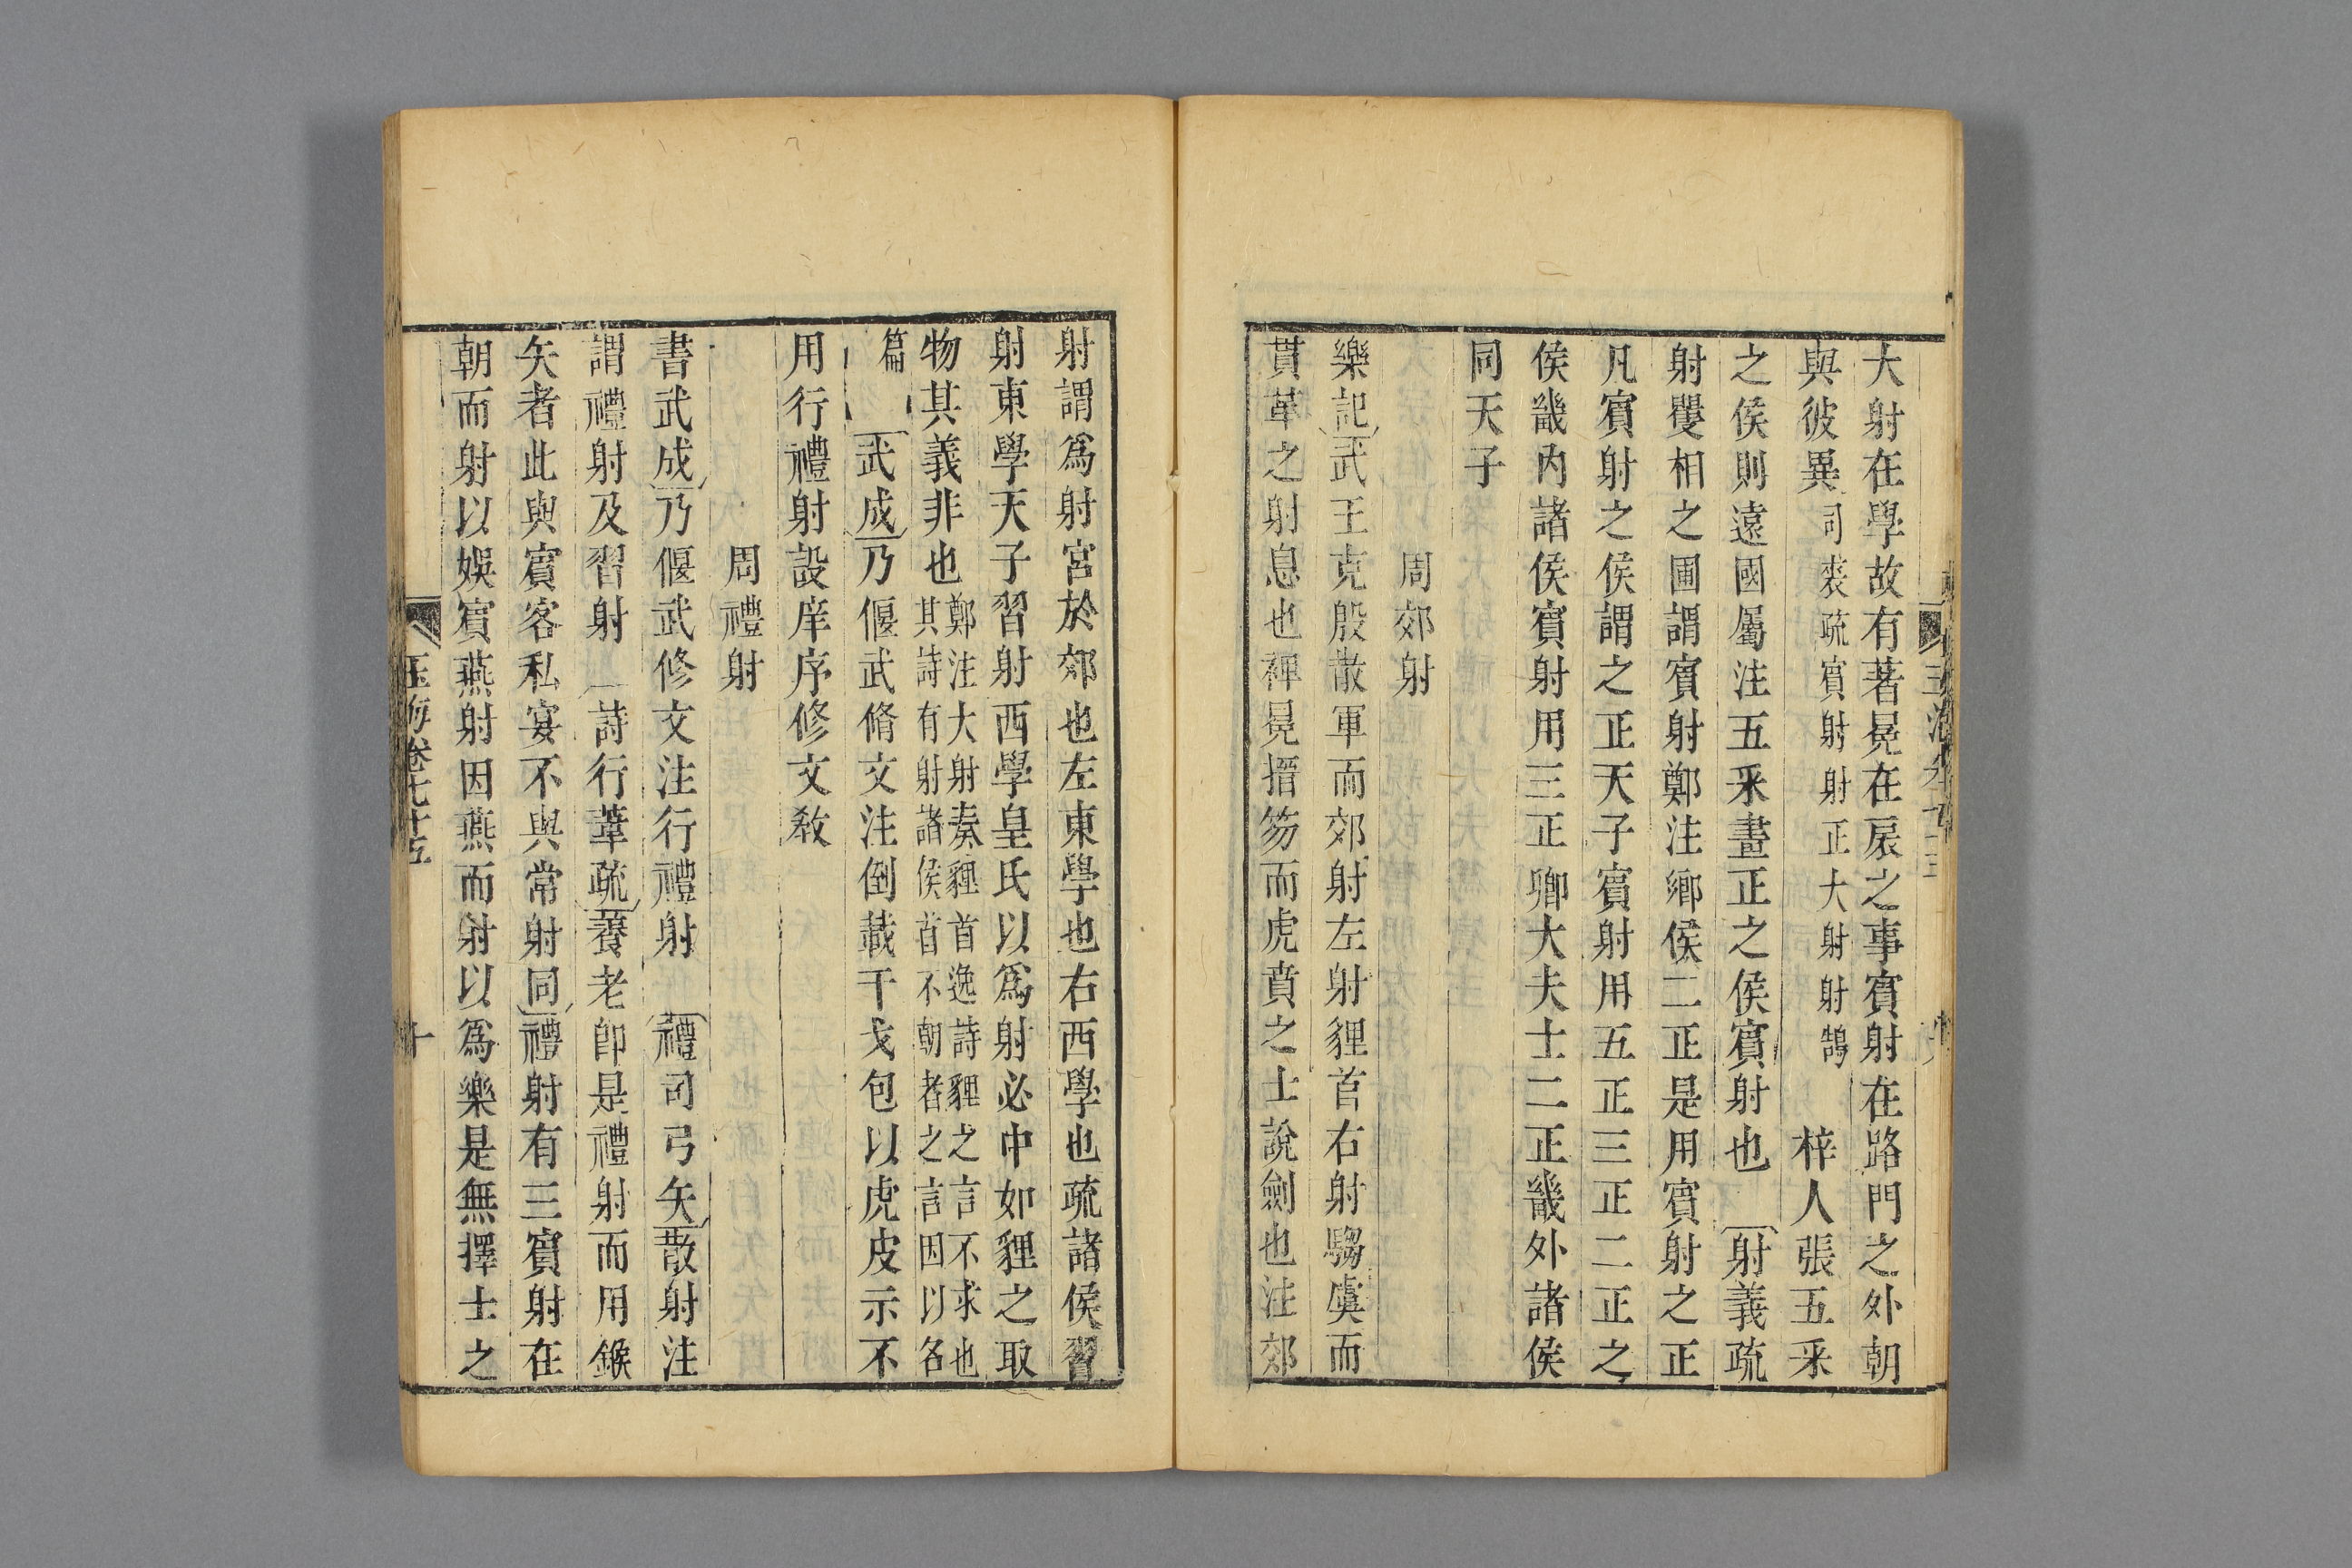 大射在學故有著冕在扆之事賓射在路門之外朝
與彼異司裘疏賓射射正大射射鵠　梓人張五采
之侯則遠國屬注五采畫正之侯賓射也　射義疏
射矍相之圃謂賓射鄭注鄉侯二正是用賓射之正
凡賓射之侯謂之正天子賓射用五正三正二正之
侯畿内諸侯賓射用三正卿大夫士二正畿外諸侯
同天子
周郊射
樂記武王克殷散軍而郊射左射貍首右射騶虞而
貫革之射息也裨冕搢笏而虎賁之士說劍也注郊
射謂爲射宮於郊也左東學也右西學也疏諸侯習
射東學天子習射西學皇氏以爲射必中如貍之取
物其義非也鄭注大射奏貍首逸詩貍之言不求也
其詩有射諸侯首不朝者之言因以名
篇　武成乃偃武脩文注倒載干戈包以虎皮示不
用行禮射設庠序修文敎
周禮射
書武成乃偃武修文注行禮射　禮司弓矢散射注
謂禮射及習射　詩行葦疏養老卽是禮射而用鍭
矢者此與賓客私宴不與常射同禮射有三賓射在
朝而射以娛賓燕射因燕而射以爲樂是無擇士之
玉海卷七十五
十